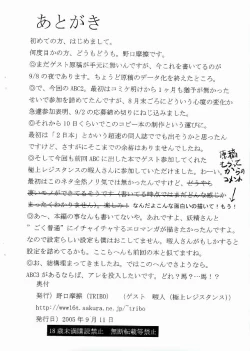 あとがき
初めての方、はじめまして。
何度目かの方、どうもどうも、野口摩擦です。
◎まだゲスト原稿が手元に無いんですが、今これを書いてるのが
9/8の夜であります。ちょうど原稿のデータ化を終えたところ。
◎で、今回のABC2。最初はコミケ明けから1ヶ月も猶予が無かった
せいで参加を諦めてたんですが、8月末ごろにどういう心境の変化か
急遽参加表明、9/2の応募締め切りにねじ込みました。
◎それから10日くらいでこのコピー本の制作という運びに。
最初は「2日本」とかいう超速の同人誌ででも出そうかと思ったん
ですけど、さすがにそこまでの余裕はありませんでしたね。
◎そして今回も前回ABCに出した本でゲスト参加してくれた
極上レジスタンスの暇人さんに参加していただけました。わーい。
最初はこのネタ全然ノリ気では無かったんですけど、
なんだよこんな面白いの描いて！もう！
◎あー、本編の事なんも書いてないや。あれですよ、妖精さんと
"ごく普通"にイチャイチャするスロマンガが描きたかったんですよ。
なのになのにもう設定も僕はおこしてません。暇人さんがもしかすると
設定を詰めてるかも、こころへんも前回の本と似てますね。
◎お、結構埋まってきましたね。ではこのへんでさようなら。
ABC3があるならば、アレを投入したいです。どれ？馬？…馬！？
奥付
発行）野口摩擦（TRIBO）　（ゲスト　暇人（極上レジスタンス））
http://www16t.sakura.ne.jp/~tribo
発行日）2005年9月11日
18歳未満購読禁止　無断転載等禁止